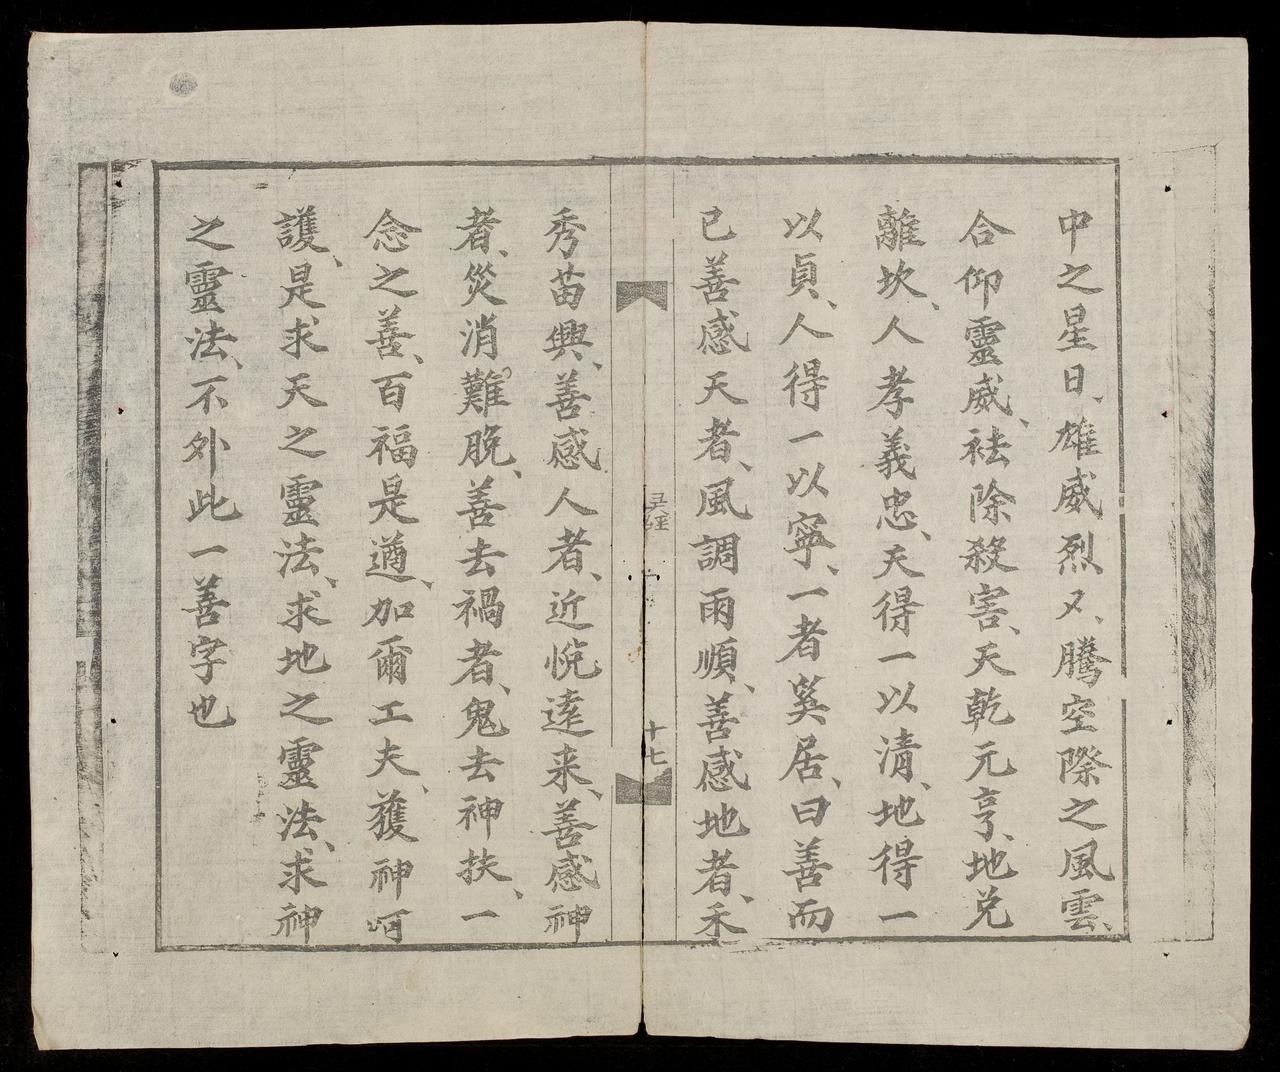 中之星日、雄威烈又、騰空際之風雲、
合仰靈威、袪除殺害、天乾元亨、地兌
離坎、人孝義忠、天得一以清、地得一
以貞、人得一以寧、一者奚居、曰善而
已善感天者、風調雨順、善感地者、禾
十七
秀苗興、善感人者、近悅遠来、善感神
者、災消難脫、善去禍者、鬼去神扶、一
念之善、百福是遒、加爾工夫、獲神呵
護、是求天之靈法、求地之靈法、求神
之靈法、不外此一善字也